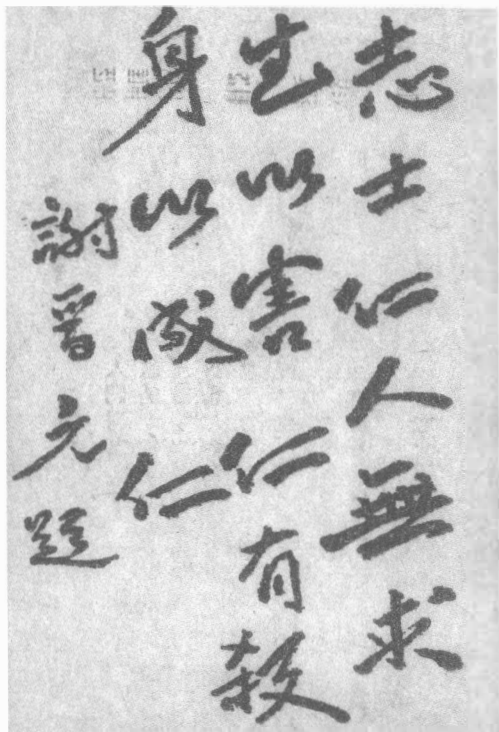 志士仁人無求
生以害仁有殺
身以成仁
謝晉元題